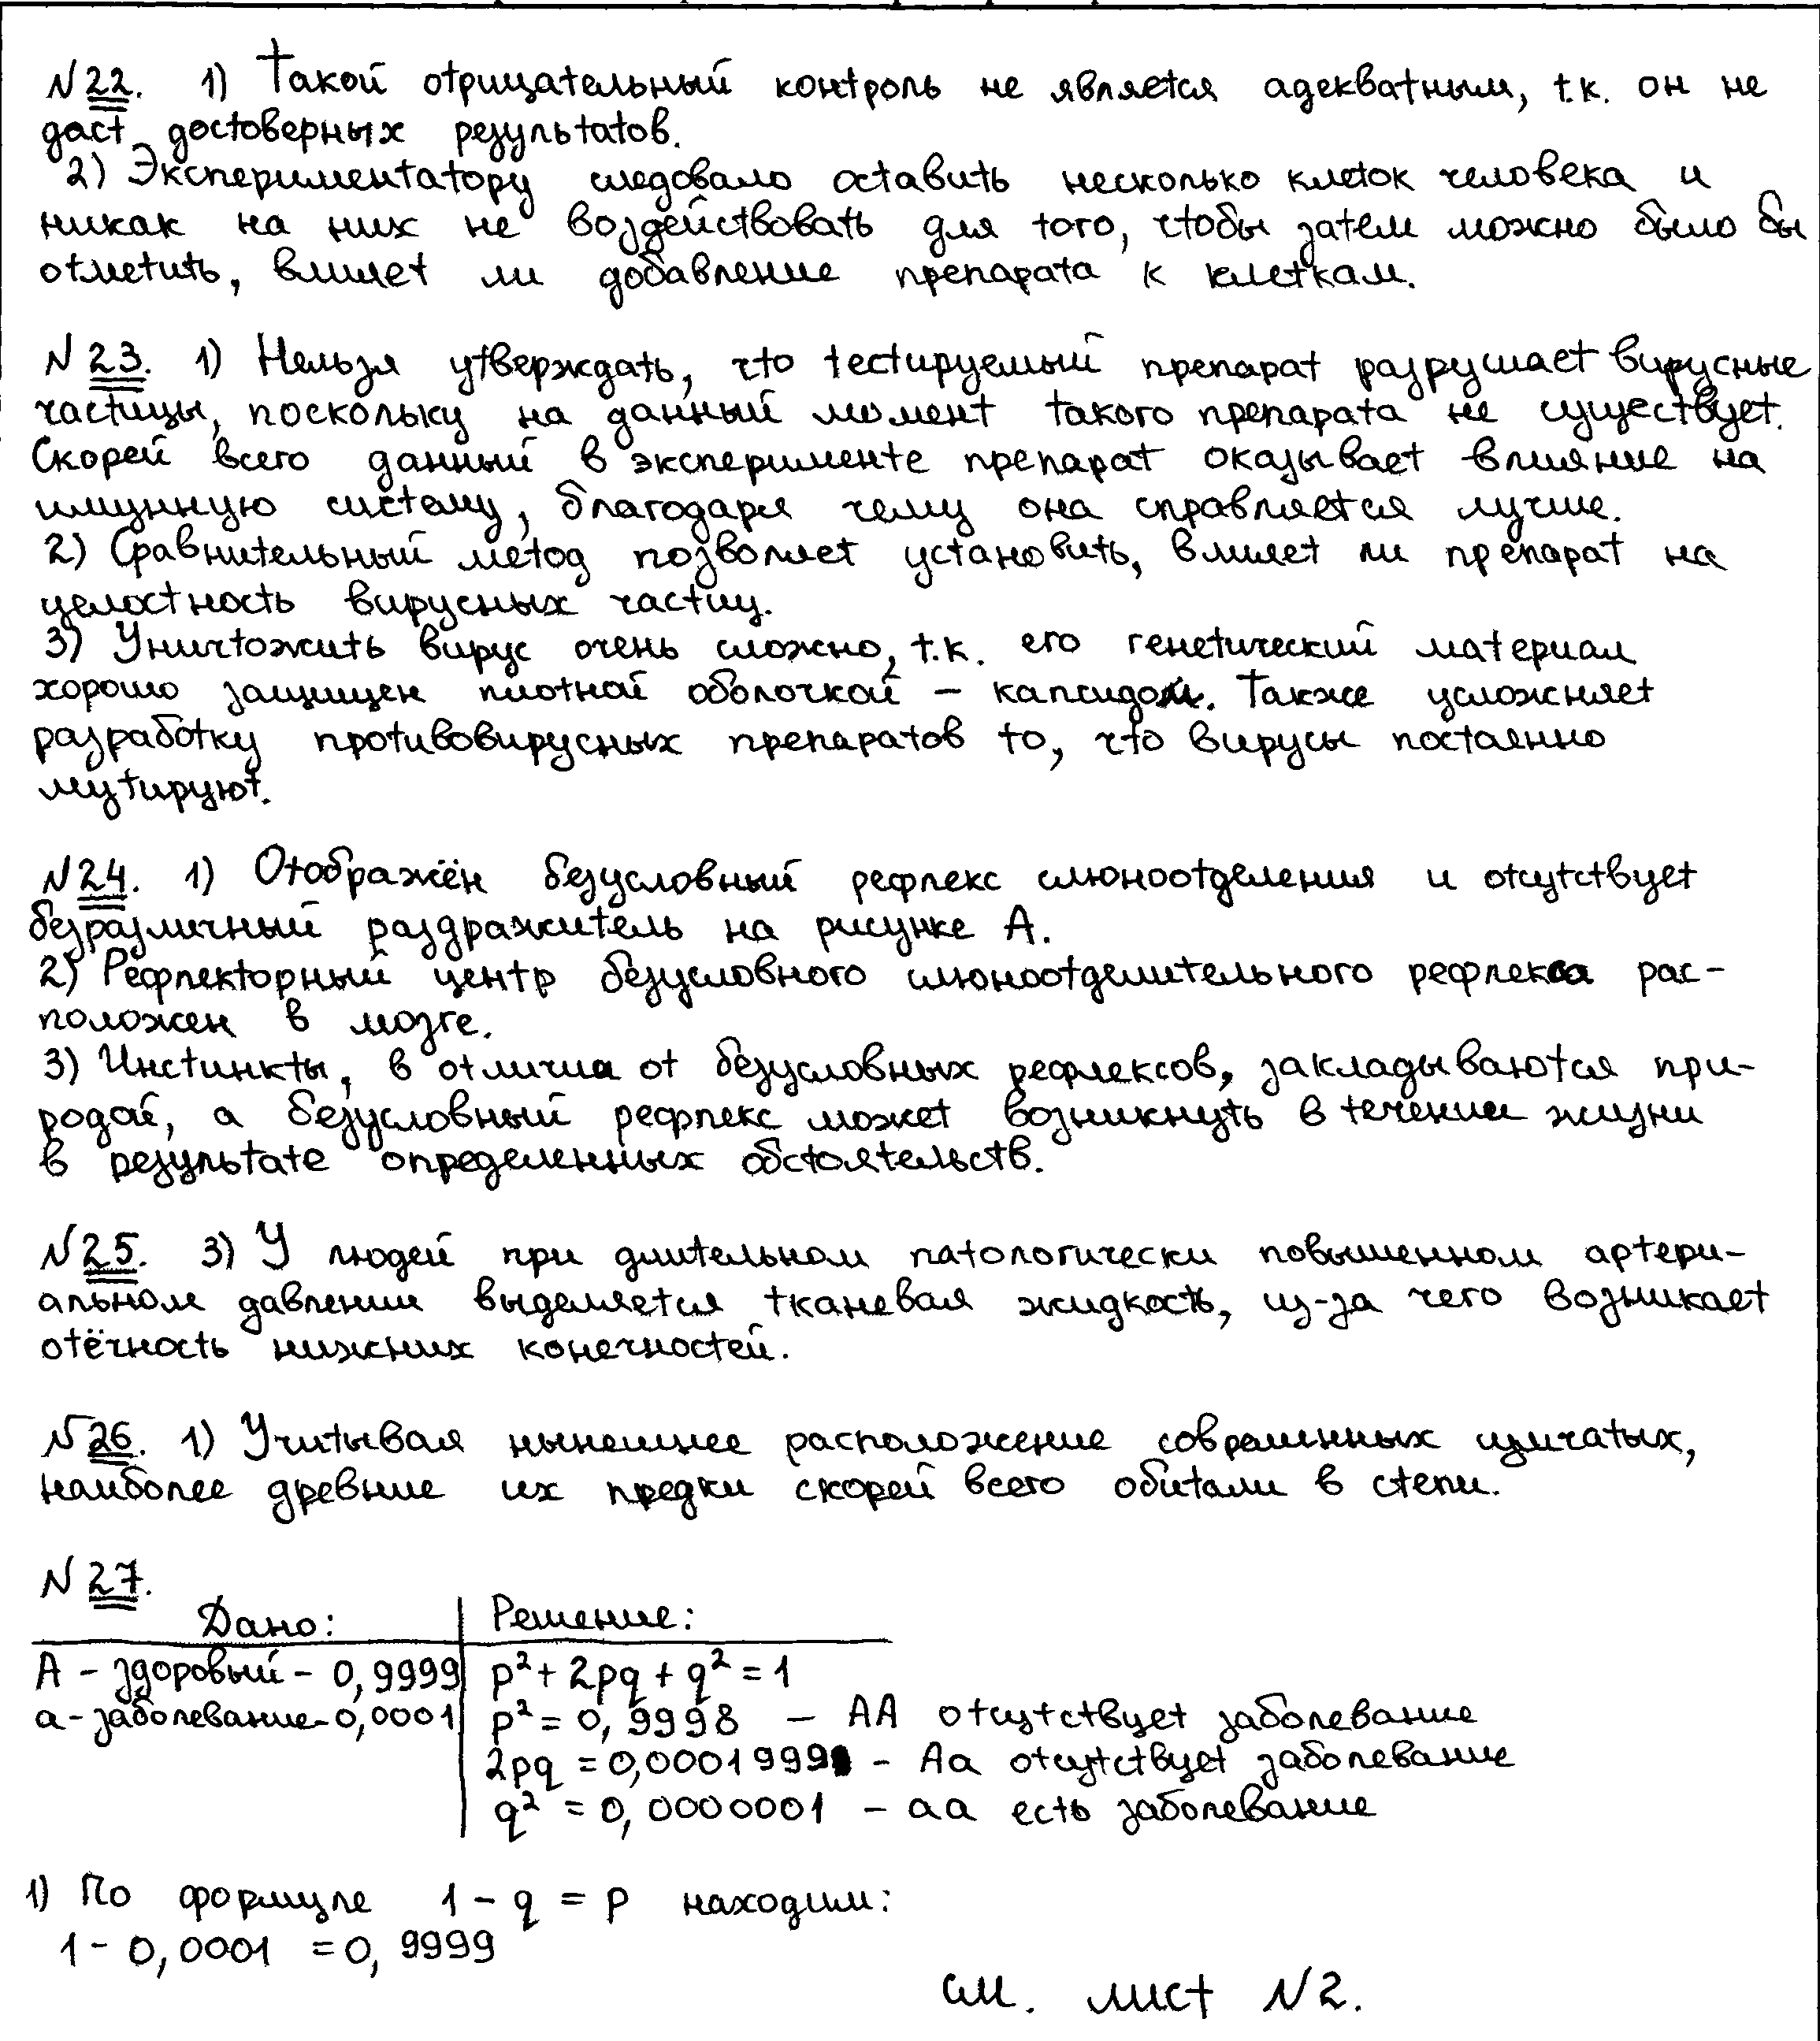 N22. 1) Такой отрицательный контроль не является адекватным, т.к. он не
даст достоверных результатов.
2) Экспериментатору следовало оставить несколько клеток человека и
никак на них не воздействовать для того, чтобы затем можно было бы
отметить, влияет ли добавление препарата к клеткам.
N23. 1) Нельзя утверждать, что тестируемый препарат разрушает вирусные
частицы, поскольку на данный момент такого препарата не существует.
Скорей всего данный в эксперименте препарат оказывает влияние на
имунную систему, благодаря чему она справляется лучше.
2) Сравнительный метод позволяет установить, влияет ли препарат на
целостность вирусных частиц.
3) Уничтожить вирус очень сложно, т.к. его генетический материал
хорошо защищен плотной оболочкой – капсидом. Также усложняет
разработку противовирусных препаратов то, что вирусы постоянно
мутируют.
N24. 1) Отображён безусловный рефлекс слюноотделения и отсутствует
безразличный раздражитель на рисунке А.
2) Рефлекторный центр безусловного слюноотделительного рефлекса рас-
положен в мозге.
3) Инстинкты, в отличиа от безусловных рефлексов, закладываются при-
родой, а безусловный рефлекс может возникнуть в течении жизни
в результате определенных обстоятельств.
N25. 3) У людей при длительном патологически повышенном артери-
альном давлении выделяется тканевая жидкость, из-за чего возникает
отёчность нижних конечностей.
N26. 1) Учитывая нынешнее расположение современных цмчатых,
наиболее древние их предки скорей всего обитали в степи.
N27.
Дано: Решение:
А – здоровый – 0,9999 p² + 2pq + q² = 1
а – заболевание – 0,0001 p² = 0,9998 – АА отсутствует заболевание
2pq = 0,0001999 – Аа отсутствует заболевание
q² = 0,0000001 – аа есть заболевание
1) По формуле 1 – q = p находим:
1 – 0,0001 = 0,9999
см. лист N2.